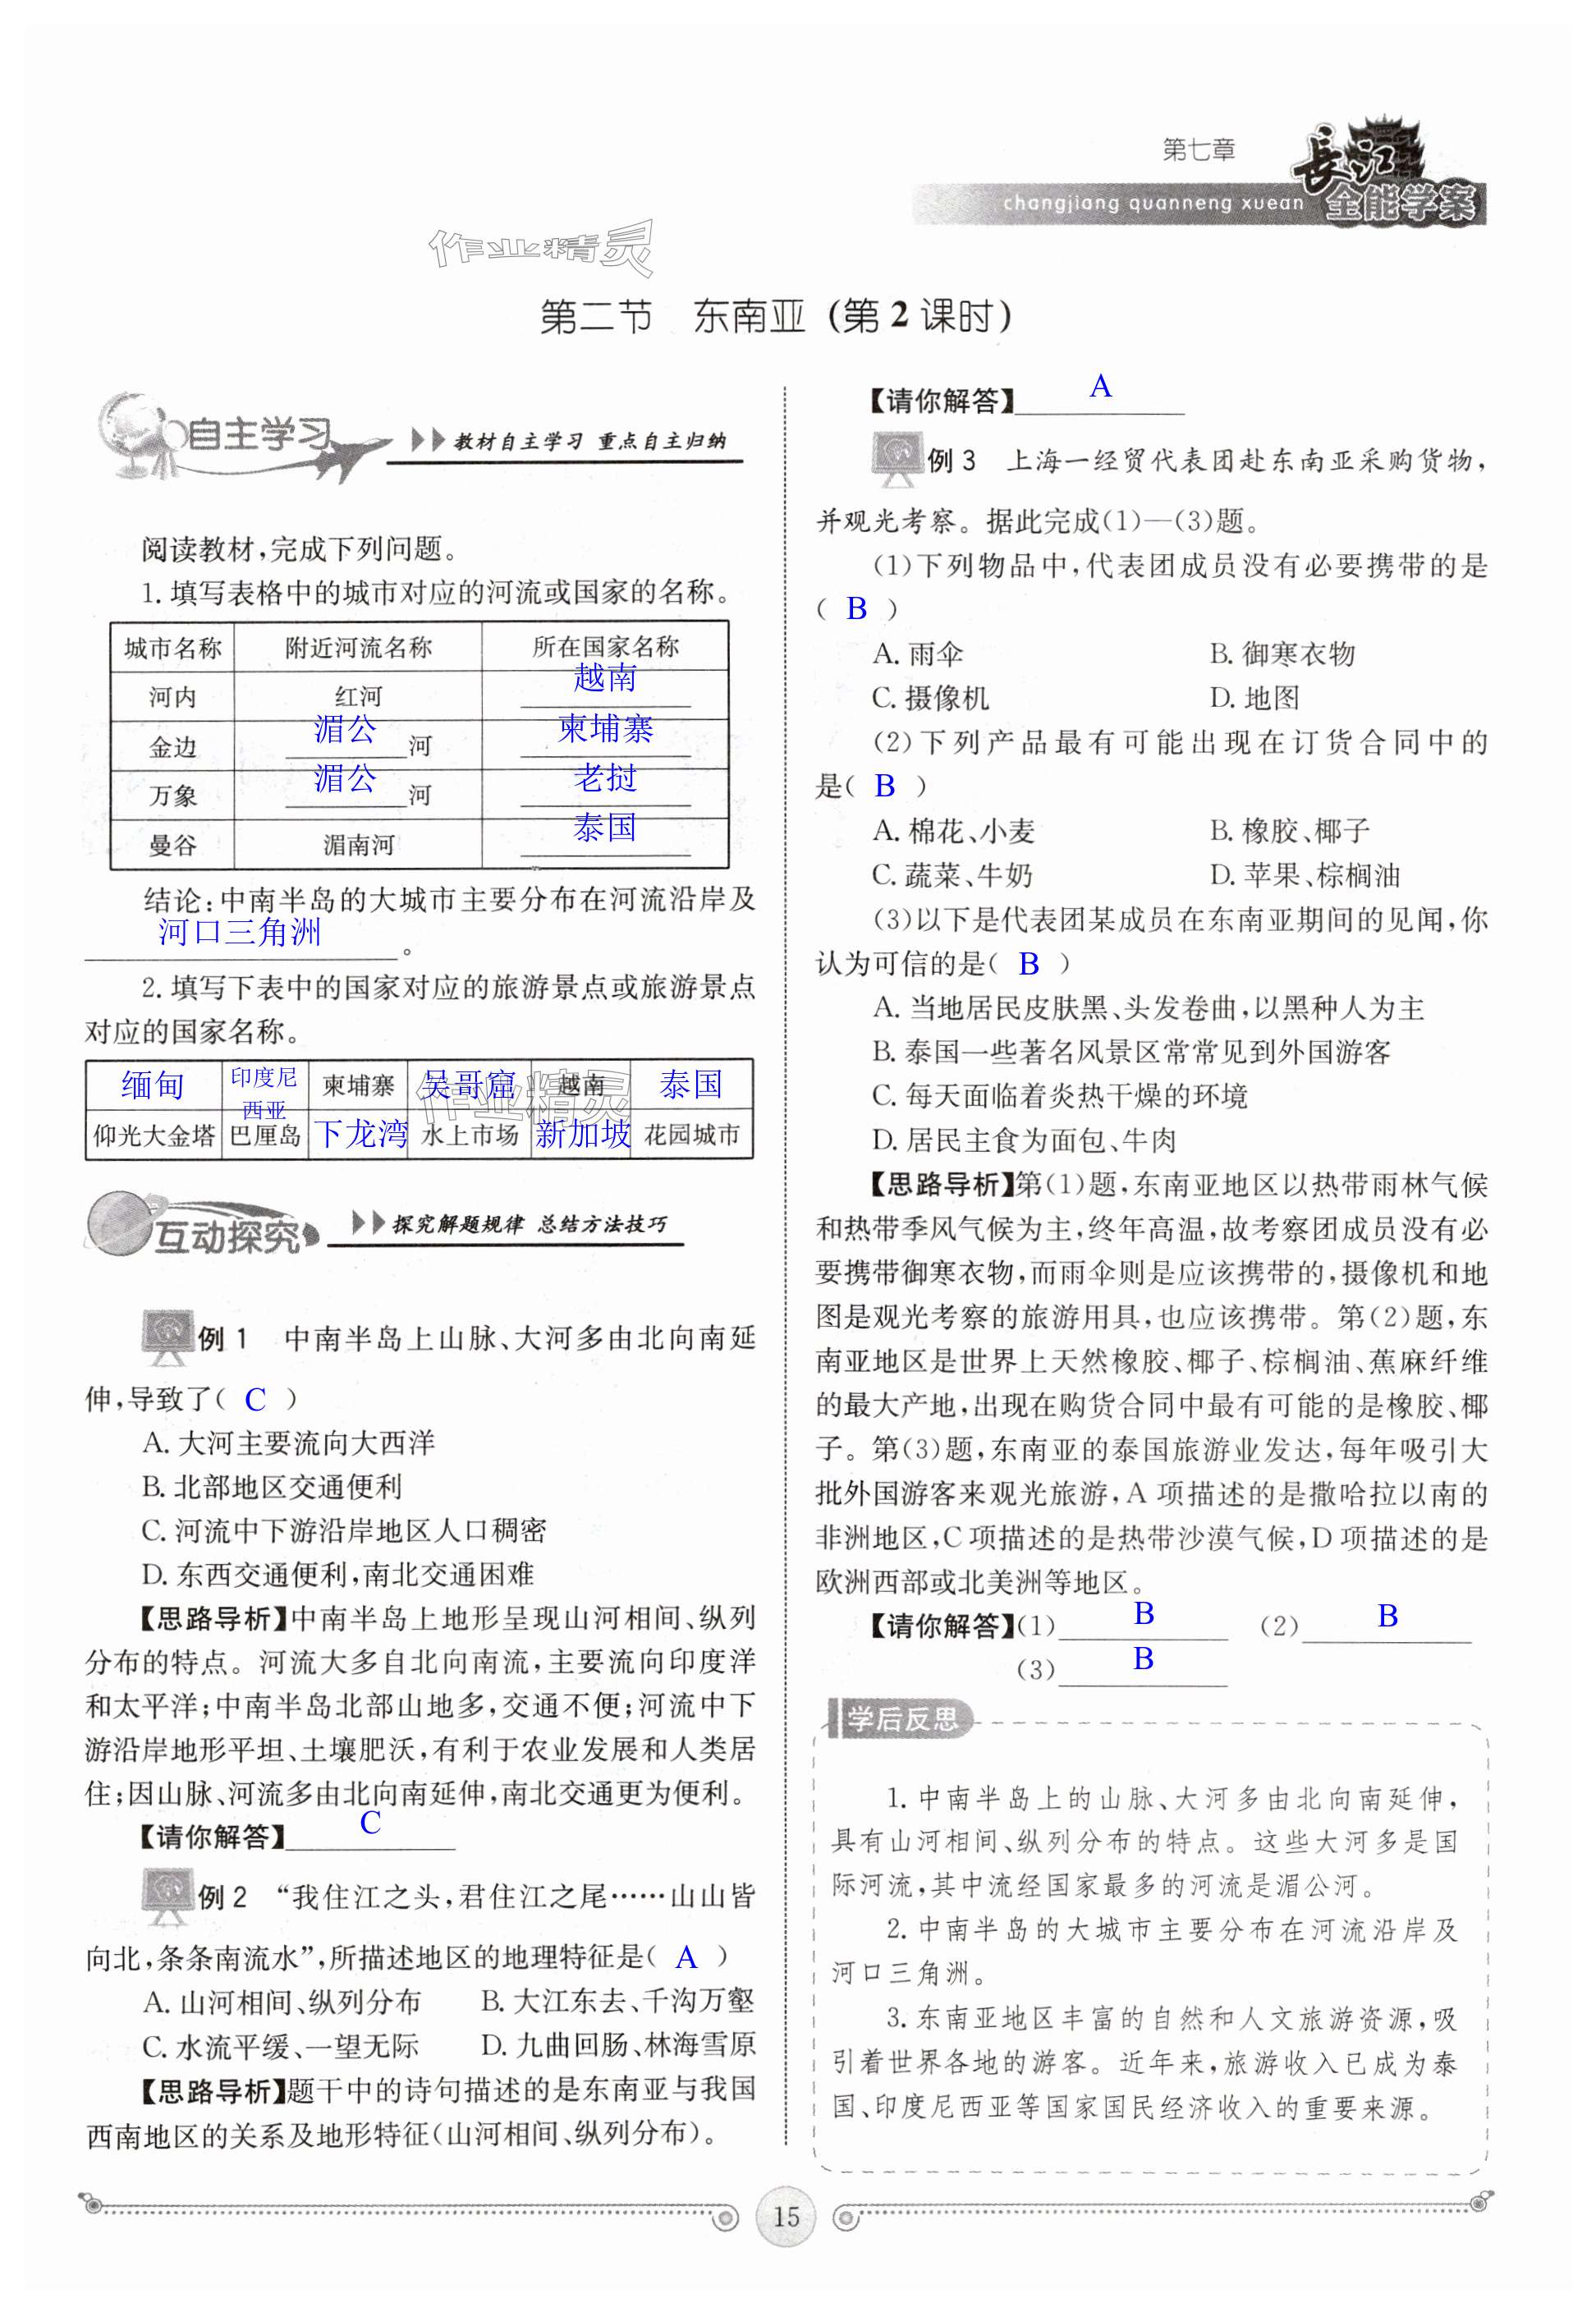 第七章
長江
全能学案
changjiang quanneng xuean
作业精灵
第二节 东南亚(第2课时)
自主学习 教材自主学习 重点自主归纳
阅读教材,完成下列问题。
1. 填写表格中的城市对应的河流或国家的名称。
城市名称 附近河流名称 所在国家名称
河内 红河 越南
金边 湄公河 柬埔寨
万象 湄公河 老挝
曼谷 湄南河 泰国
结论:中南半岛的大城市主要分布在河流沿岸及
河口三角洲。
2. 填写下表中的国家对应的旅游景点或旅游景点
对应的国家名称。
缅甸 印度尼西亚 柬埔寨 吴哥窟 越南 泰国
作业精灵
仰光大金塔 巴厘岛 下龙湾 水上市场 新加坡 花园城市
互动探究 探究解题规律 总结方法技巧
例1 中南半岛上山脉、大河多由北向南延
伸,导致了( C )
A. 大河主要流向大西洋
B. 北部地区交通便利
C. 河流中下游沿岸地区人口稠密
D. 东西交通便利,南北交通困难
【思路导析】中南半岛上地形呈现山河相间、纵列
分布的特点。河流大多自北向南流,主要流向印度洋
和太平洋;中南半岛北部山地多,交通不便;河流中下
游沿岸地形平坦、土壤肥沃,有利于农业发展和人类居
住;因山脉、河流多由北向南延伸,南北交通更为便利。
【请你解答】C
例2 “我住江之头,君住江之尾……山山皆
向北,条条南流水”,所描述地区的地理特征是( A )
A. 山河相间、纵列分布 B. 大江东去、千沟万壑
C. 水流平缓、一望无际 D. 九曲回肠、林海雪原
【思路导析】题干中的诗句描述的是东南亚与我国
西南地区的关系及地形特征(山河相间、纵列分布)。
【请你解答】A
例3 上海一经贸代表团赴东南亚采购货物,
并观光考察。据此完成(1)—(3)题。
(1)下列物品中,代表团成员没有必要携带的是
( B )
A. 雨伞 B. 御寒衣物
C. 摄像机 D. 地图
(2)下列产品最有可能出现在订货合同中的
是( B )
A. 棉花、小麦 B. 橡胶、椰子
C. 蔬菜、牛奶 D. 苹果、棕榈油
(3)以下是代表团某成员在东南亚期间的见闻,你
认为可信的是( B )
A. 当地居民皮肤黑、头发卷曲,以黑种人为主
B. 泰国一些著名风景区常常见到外国游客
C. 每天面临着炎热干燥的环境
D. 居民主食为面包、牛肉
【思路导析】第(1)题,东南亚地区以热带雨林气候
和热带季风气候为主,终年高温,故考察团成员没有必
要携带御寒衣物,而雨伞则是应该携带的,摄像机和地
图是观光考察的旅游用具,也应该携带。第(2)题,东
南亚地区是世界上天然橡胶、椰子、棕榈油、蕉麻纤维
的最大产地,出现在购货合同中最有可能的是橡胶、椰
子。第(3)题,东南亚的泰国旅游业发达,每年吸引大
批外国游客来观光旅游,A 项描述的是撒哈拉以南的
非洲地区,C 项描述的是热带沙漠气候,D 项描述的是
欧洲西部或北美洲等地区。
【请你解答】(1) B (2) B
(3) B
学后反思
1. 中南半岛上的山脉、大河多由北向南延伸,
具有山河相间、纵列分布的特点。这些大河多是国
际河流,其中流经国家最多的河流是湄公河。
2. 中南半岛的大城市主要分布在河流沿岸及
河口三角洲。
3. 东南亚地区丰富的自然和人文旅游资源,吸
引着世界各地的游客。近年来,旅游收入已成为泰
国、印度尼西亚等国家国民经济收入的重要来源。
15